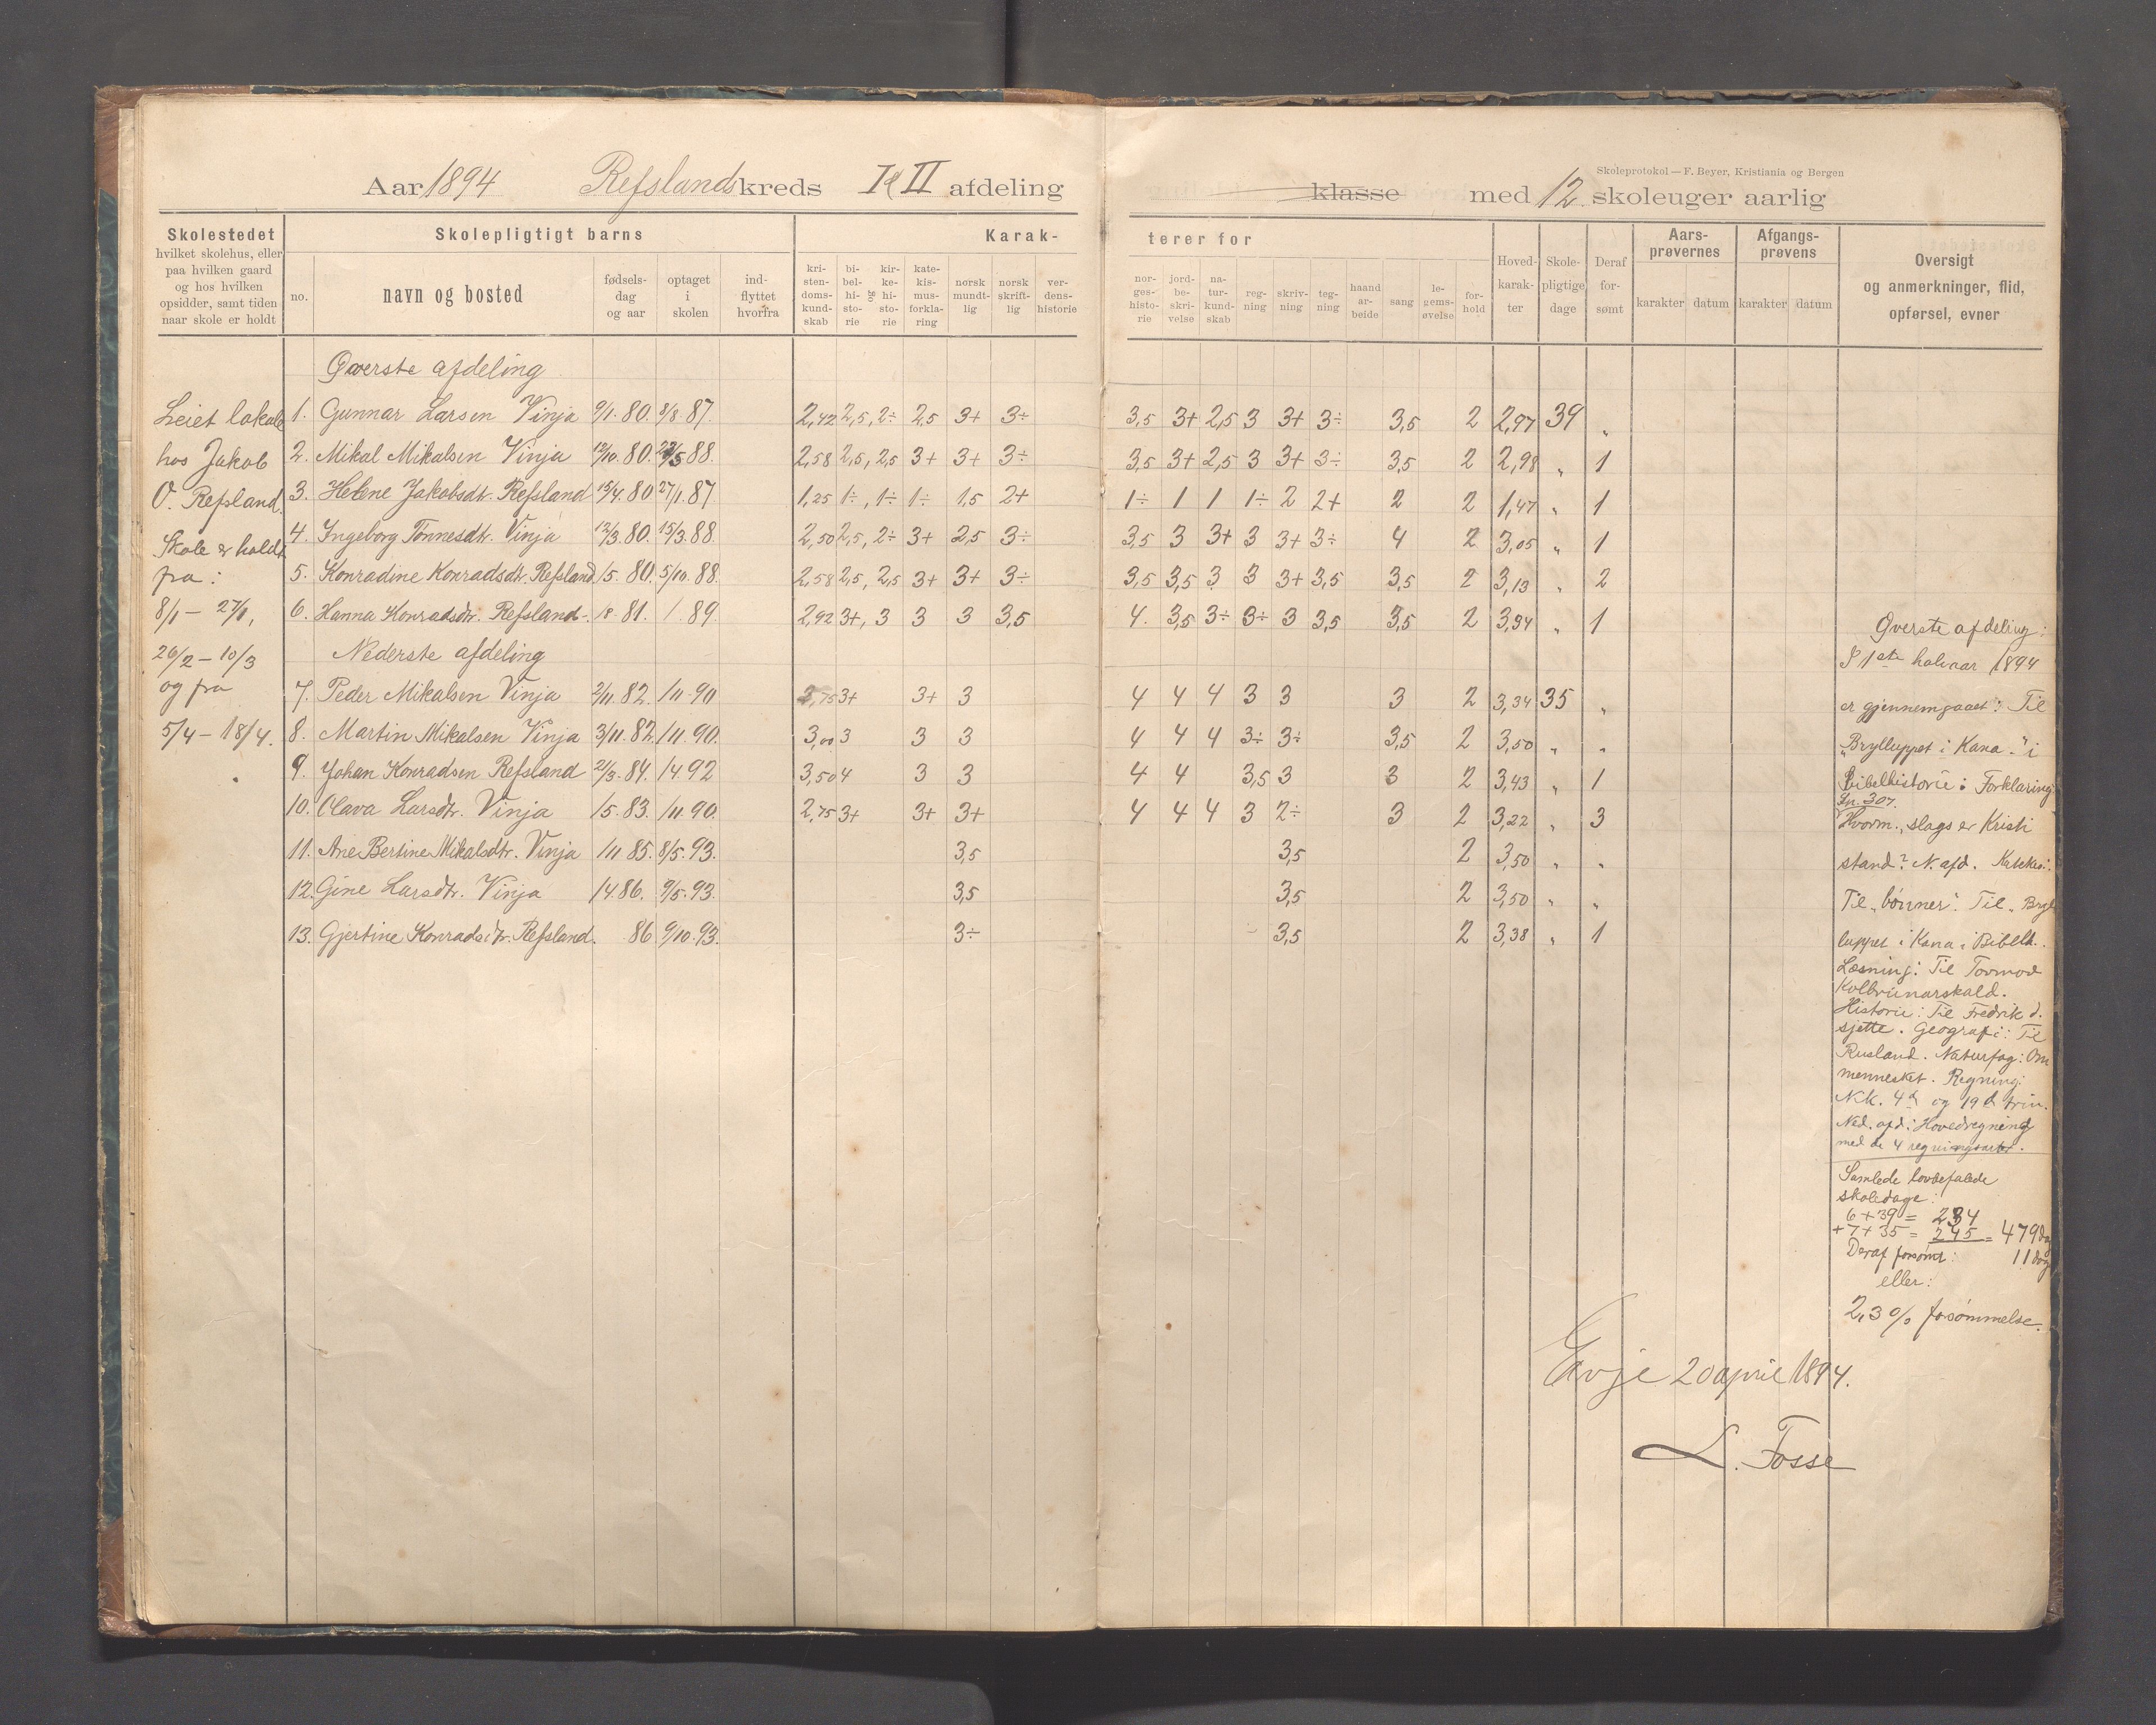 Skoleprotokol — F. Beyer, Kristiania og Bergen
Aar 1894 Refslands kreds I & II afdeling klasse med 12 skoleuger aarlig
Skolestedet
hvilket skolehus, eller
paa hvilken gaard
og hos hvilken
opsidder, samt tiden
naar skole er holdt
Skolepligtigt barns
no. navn og bosted
fødsels-
dag
og aar
optaget
i
skolen
ind-
flyttet
hvorfra
Karak-
kri-
sten-
doms-
kund-
skab
bi-
bel-
hi-
sto-
rie
og
kir-
ke-
hi-
sto-
rie
kate-
kis-
mus-
forkla-
ring
norsk
mundt-
lig
norsk
skrift-
lig
ver-
dens-
historie
terer for
nor-
ges-
histo-
rie
jord-
be-
skri-
velse
na-
tur-
kund-
skab
reg-
ning
skriv-
ning
teg-
ning
haand
ar-
beide
sang
le-
gems-
øvelse
for-
hold
Hoved-
karak-
ter
Skole-
pligtige
dage
Deraf
for-
sømt
Aars-
prøvernes
karakter datum
Afgangs-
prøvens
karakter datum
Oversigt
og anmerkninger, flid,
opførsel, evner
Leiet lokale
hos Jakob
O. Refsland.
Skole er holdt
fra:
8/1 – 27/1,
26/2 – 10/3
og fra
5/4 – 18/4.
Øverste afdeling
1. Gunnar Larsen Vinja 9/1. 80. 8/8. 87. 2,42 2,5, 2÷ 2,5 3+ 3÷ 3,5 3+ 2,5 3 3+ 3÷ 3,5 2 2,97 39 "
2. Mikal Mikalsen Vinja 12/10. 80. 23/5 88. 2,58 2,5, 2,5 3+ 3+ 3÷ 3,5 3+ 2,5 3 3+ 3÷ 3,5 2 2,98 " 1
3. Helene Jakobsdt. Refsland 15/4. 80 27/1. 87. 1,25 1÷, 1÷ 1÷ 1,5 2+ 1÷ 1 1 1÷ 2 2+ 2 2 1,47 " 1
4. Ingeborg Tønnesdtr. Vinja 12/3. 80. 15/3. 88. 2,50 2,5, 2÷ 3+ 2,5 3÷ 3,5 3 3+ 3 3+ 3÷ 4 2 3,05 " 1
5. Konradine Konradsdtr. Refsland 1/5. 80. 5/10. 88. 2,58 2,5, 2,5 3+ 3+ 3÷ 3,5 3,5 3 3 3+ 3,5 3,5 2 3,13 " 2
6. Hanna Konradsdtr. Refsland 18 81. 1 89. 2,92 3+, 3 3 3 3,5 4. 3,5 3÷ 3÷ 3 3,5 3,5 2 3,34 " 1
Nederste afdeling
7. Peder Mikalsen Vinja 2/11. 82. 1/11 90 2,75 3+ 3+ 3 4 4 4 3 3 3 2 3,34 35 "
8. Martin Mikalsen Vinja 3/11. 82. 1/11. 90. 3,00 3 3 3 4 4 4 3÷ 3÷ 3,5 2 3,50 " "
9. Johan Konradsen Refsland 2/3. 84. 14 92 3,50 4 3 3 4 4 3,5 3 3 2 3,43 " 1
10. Olava Larsdtr. Vinja 1/5. 83. 1/11. 90. 2,75 3+ 3+ 3+ 4 4 4 3 2÷ 3 2 3,22 " 3
11. Ane Bertine Mikalsdtr. Vinja 1/11 85. 8/5. 93. 3,5 3,5 2 3,50 " "
12. Gine Larsdtr. Vinja 14. 86. 9/5. 93. 3,5 3,5 2 3,50 " "
13. Gjertine Konradsdtr. Refsland. 86 9/10. 93. 3÷ 3,5 2 3,38 " 1
Øverste afdeling:
I 1ste halvaar 1894
er gjennemgaaet: Til
"Brylluppet i Kana." i
Bibelhistorie: Forklaring
Sp. 307.
Hvorm. slags er Kristi
stand? N. afd. Katekis:
Til "bønner". Til "Bryl
luppet i Kana i Bibelh.
Læsning: Til Tormod
Kolbrunarskald.
Historie: Til Fredrik d.
sjette. Geografi: Til
Rusland. Naturfag: Om
mennesket. Regning:
N.K. 4d og 19d trin.
Ned. afd: Hovedregning
med de 4 regningsarter.
Samlede lovbefalede
skoledage:
6 + 39 = 234
+ 7 + 35 = 245 = 479 dag
Deraf forsømt: 11 dag
eller:
2,3 % forsømmelse.
Evje 20 april 1894.
L. Fosse